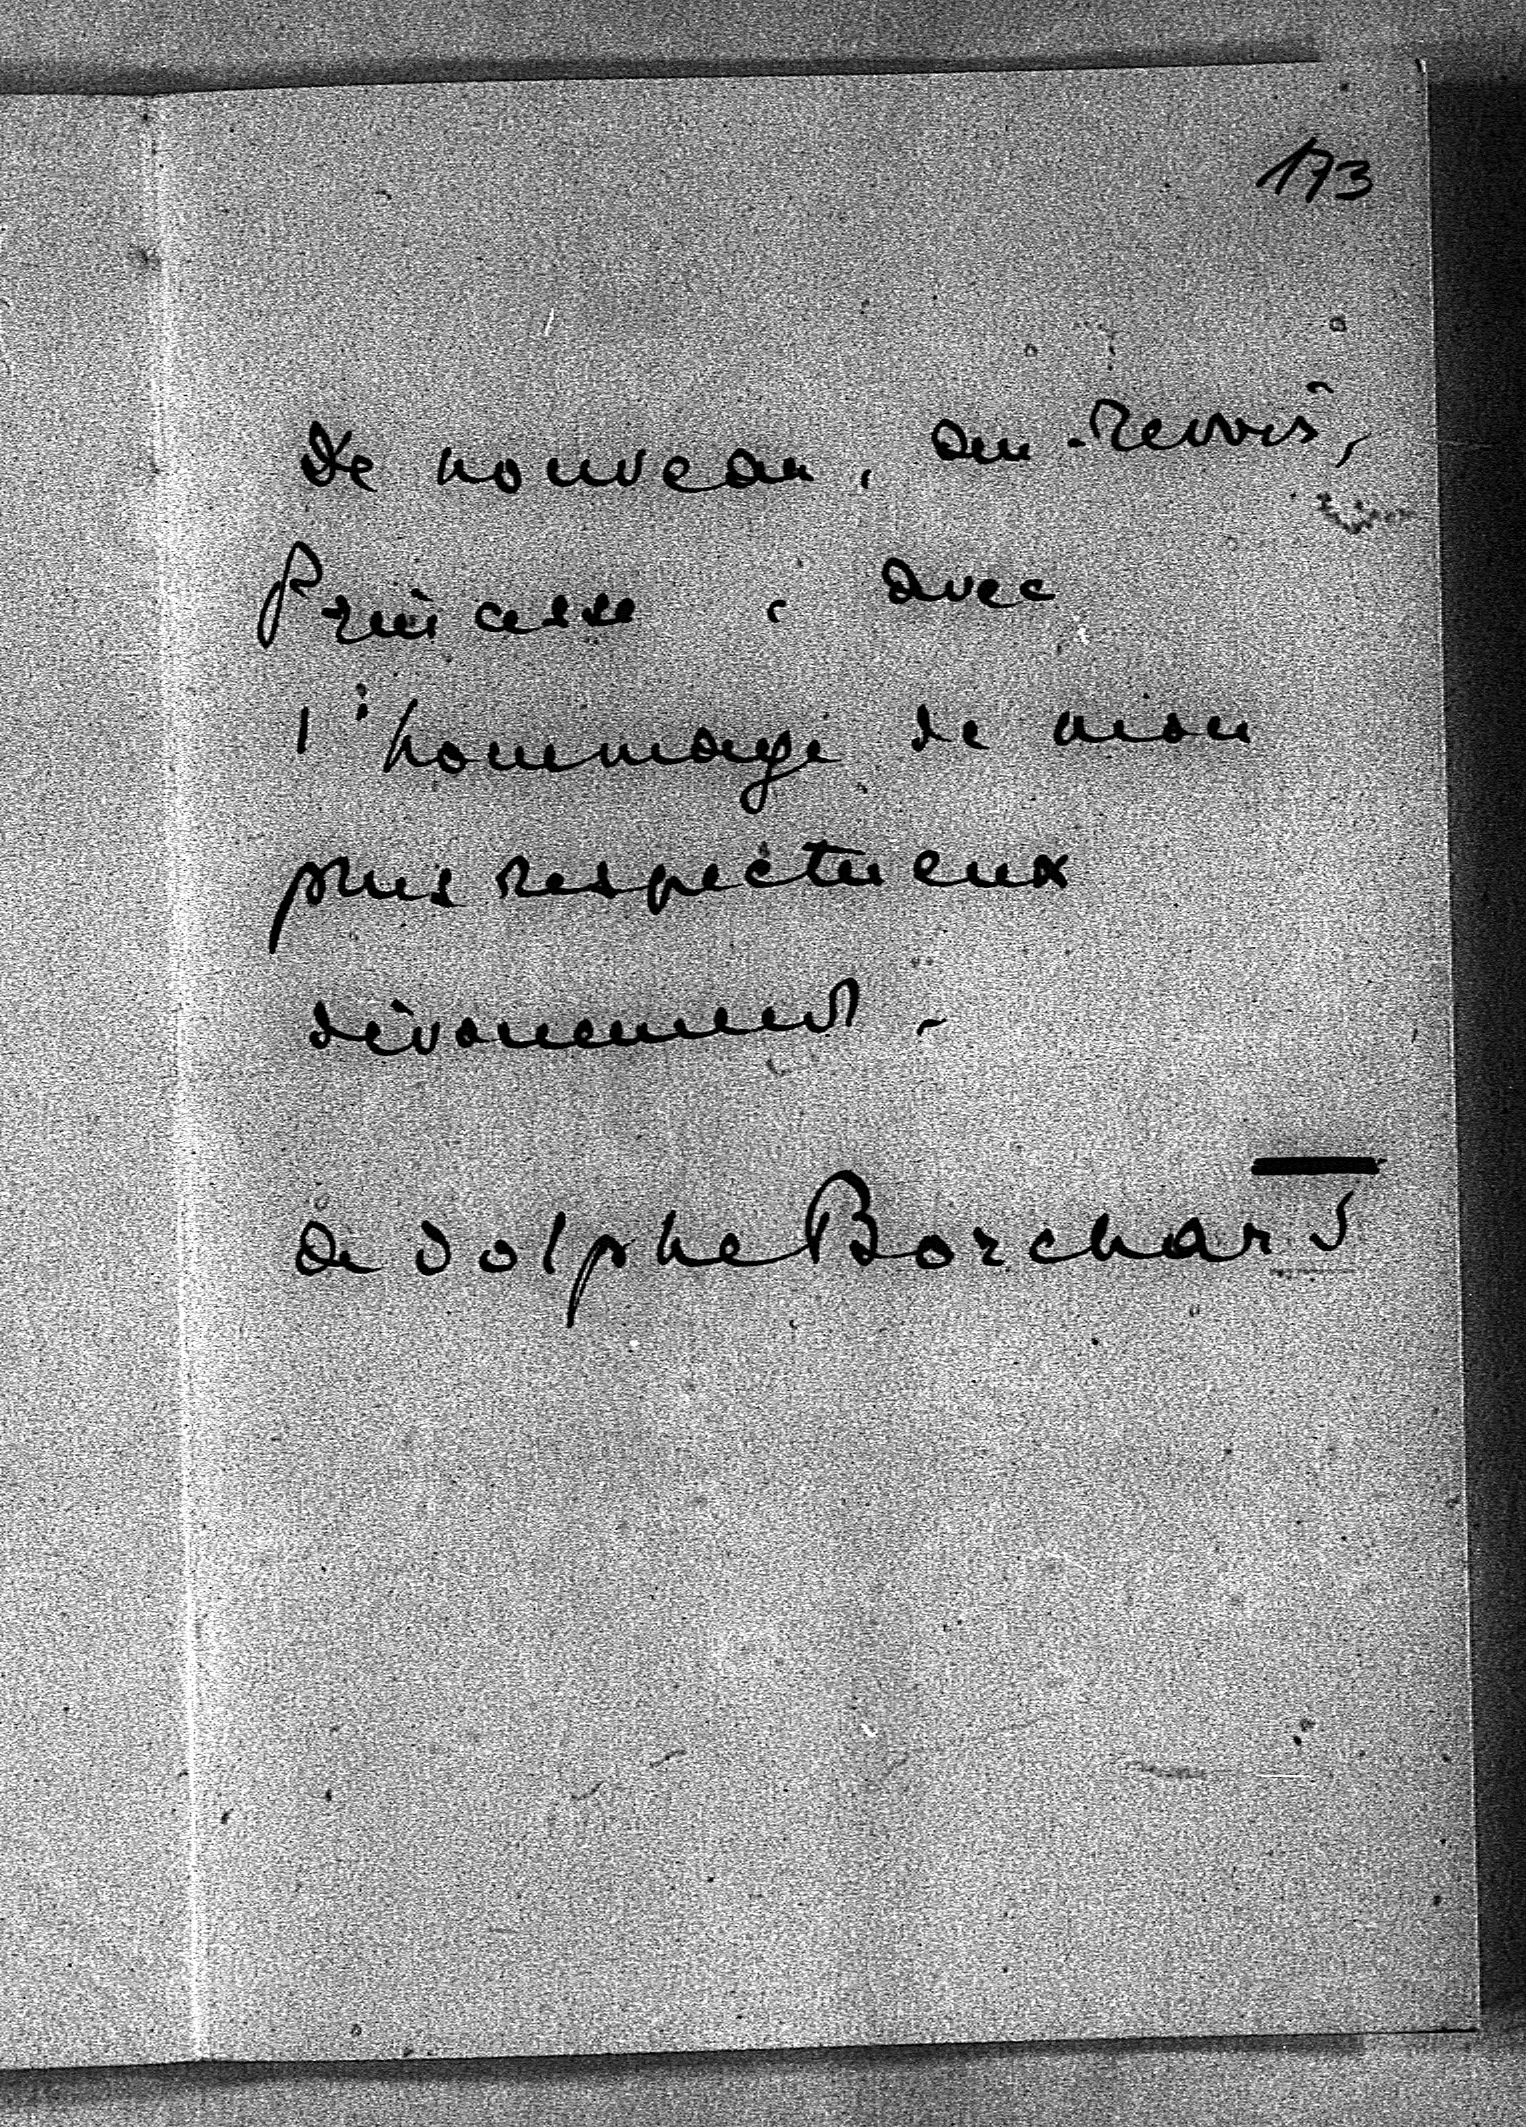 173
De nouveau, au-revoir,
Princesse, avec
l'hommage de mon
plus respectueux
dévouement.
Adolphe Borchard